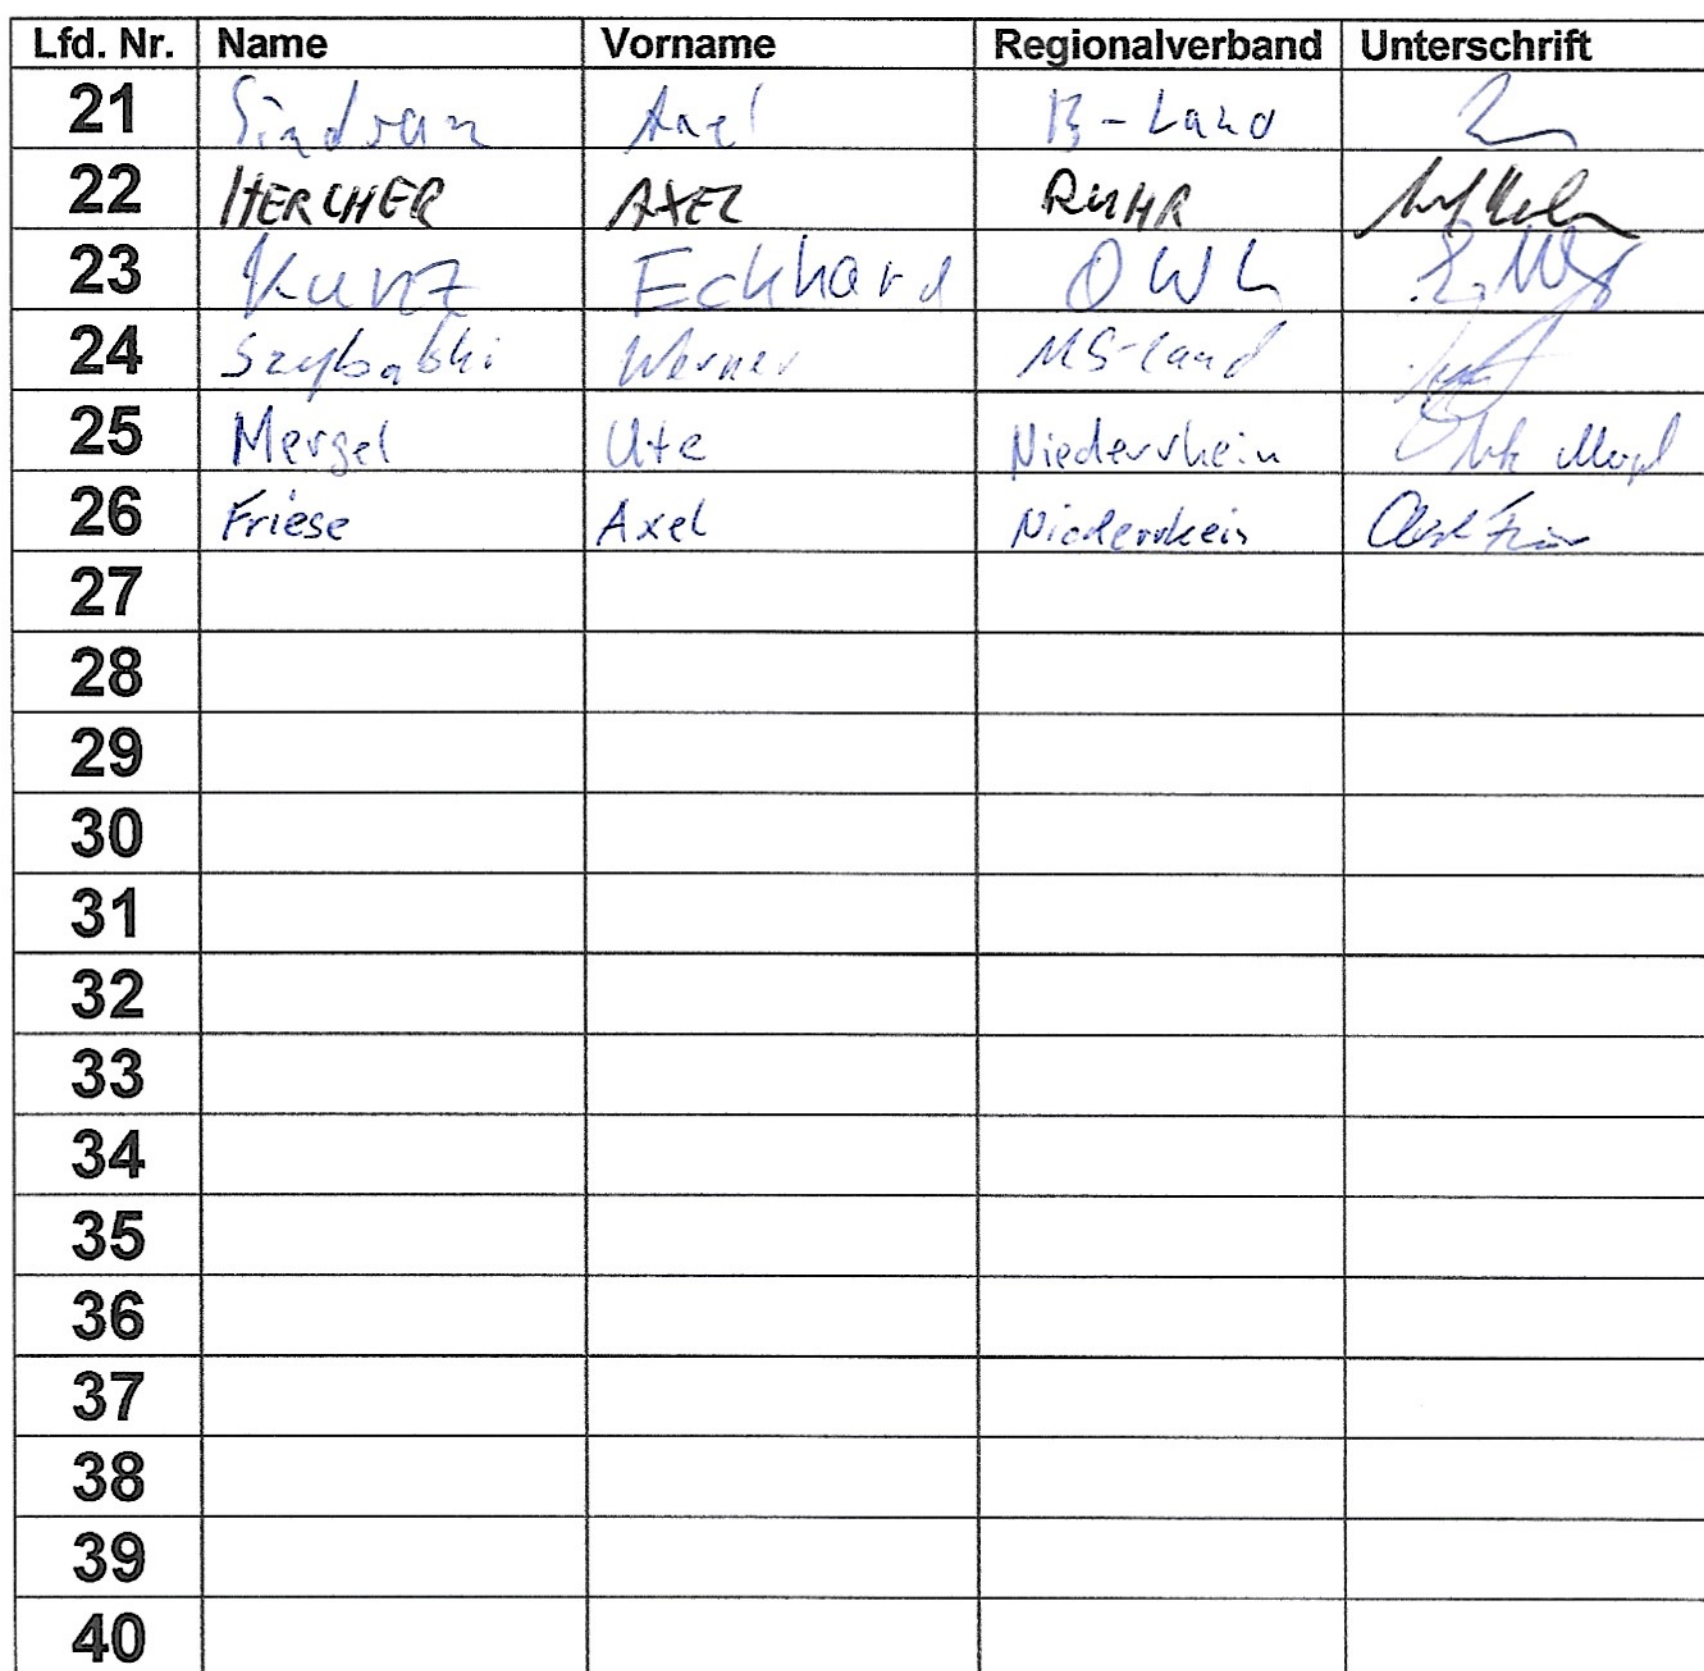 Lfd. Nr. Name Vorname Regionalverband Unterschrift
21 Axel B-Land
22 HERCHER AXEL RUHR
23 Kunz Eckhard OWL
24 Werner MS-Land
25 Mergel Ute Niederrhein Ute Mergel
26 Friese Axel Niederrhein Axel Friese
27
28
29
30
31
32
33
34
35
36
37
38
39
40